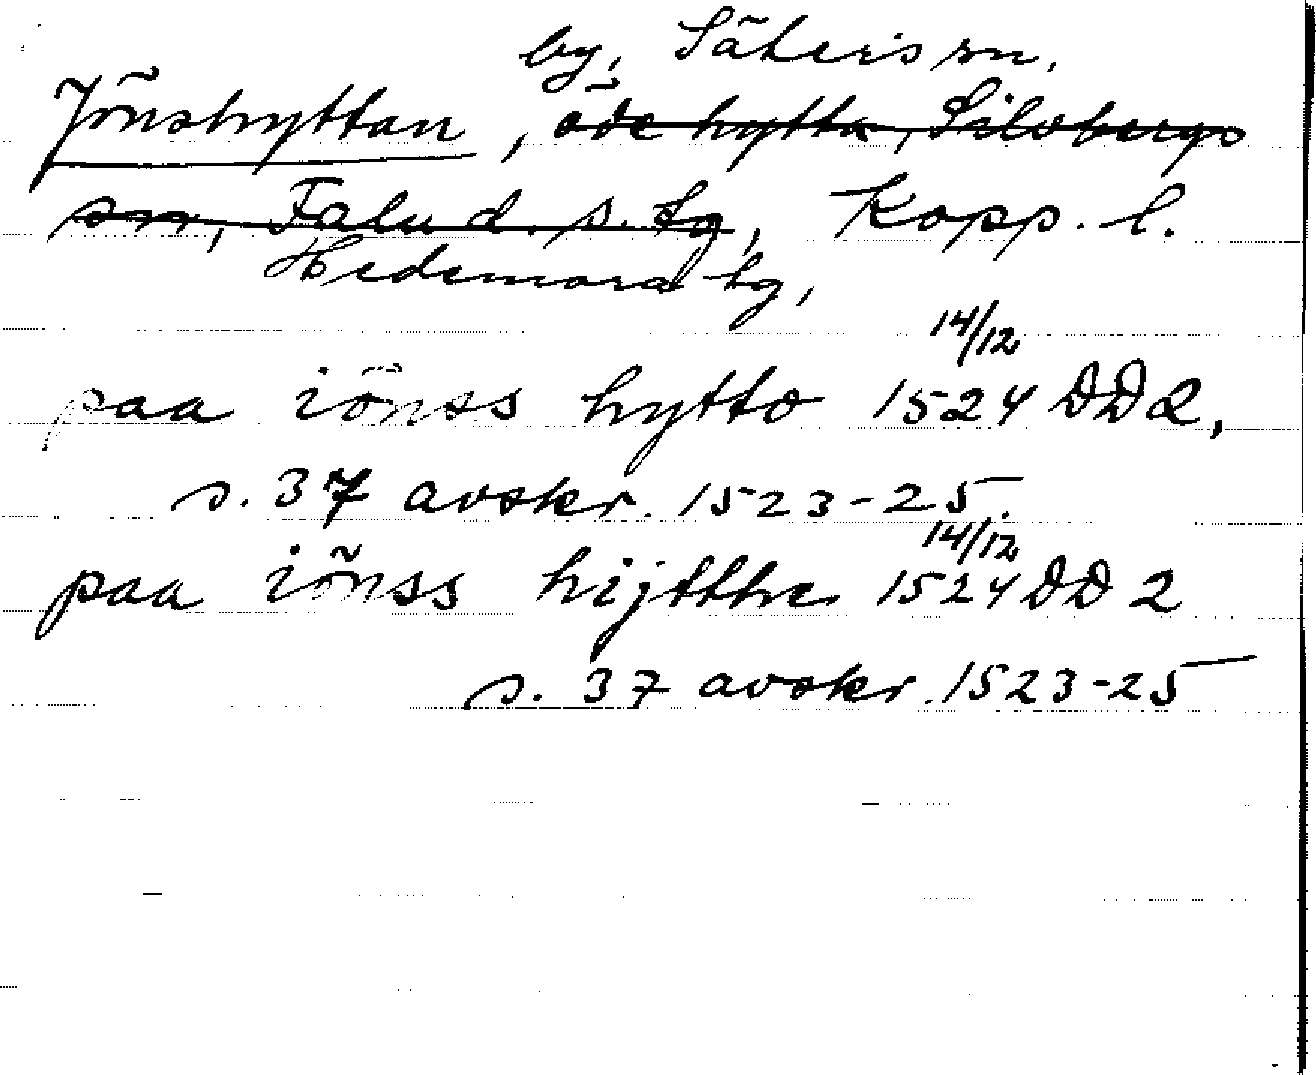 by, Säters sn,
Jönshyttan, öde hytta, Silvbergs
sn, Falu d. s. tg, Kopp. l.
Hedemora tg,
14/12
paa iönss hytto 1524 DD2,
s. 37 avskr. 1523-25.
14/12
paa iönss hijtthe 1524 DD 2
s. 37 avskr. 1523-25